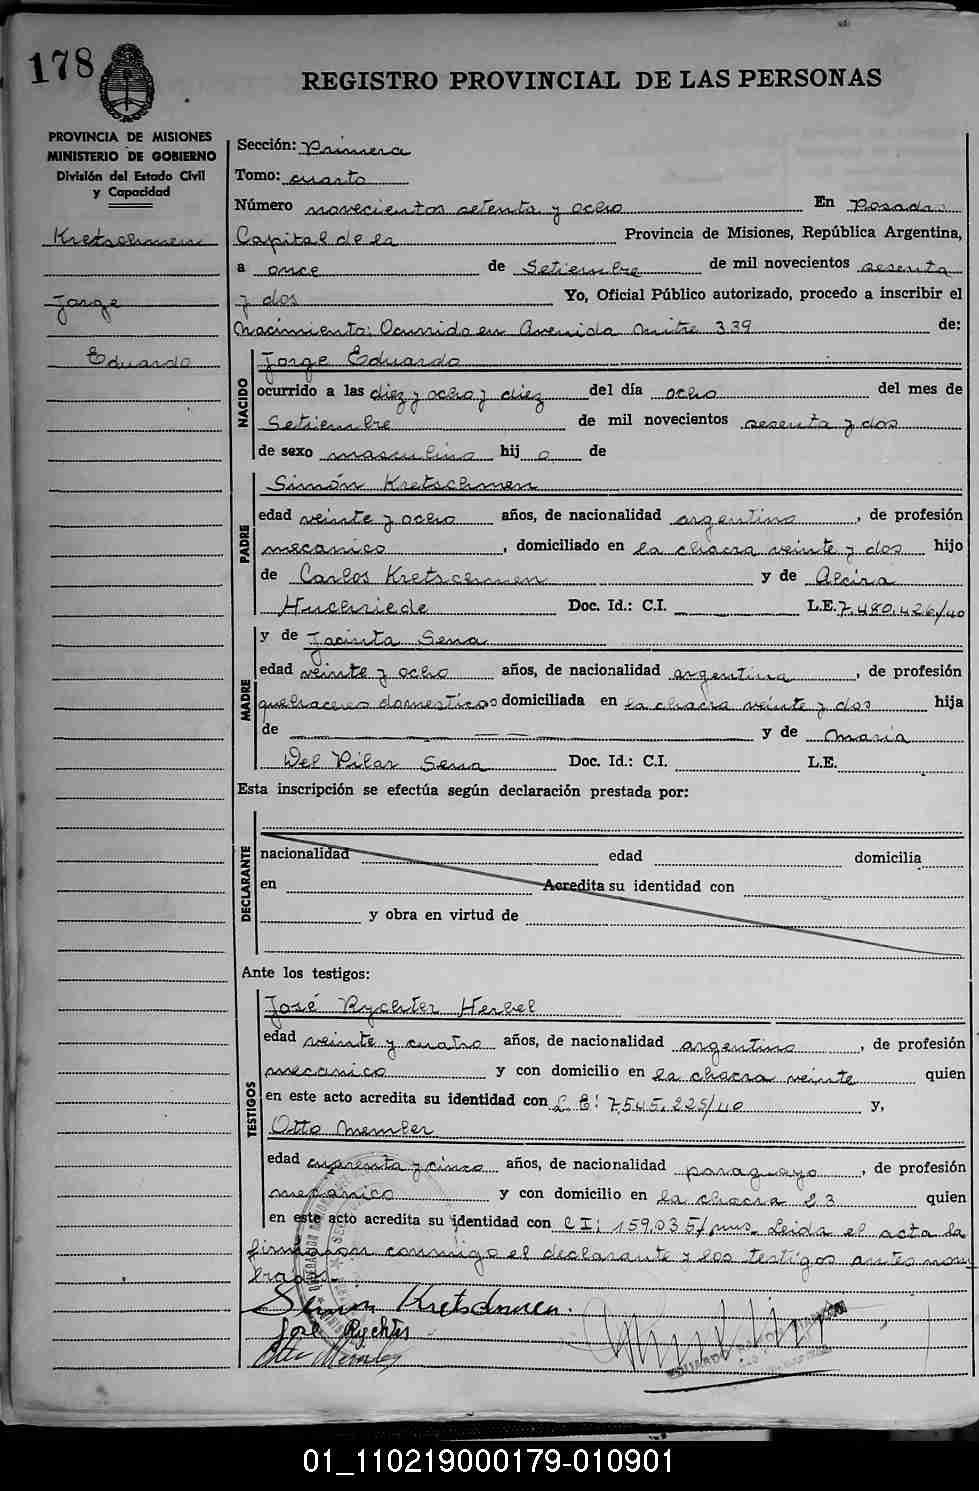 178
REGISTRO PROVINCIAL DE LAS PERSONAS
PROVINCIA DE MISIONES
MINISTERIO DE GOBIERNO
División del Estado Civil
y Capacidad
Kretschmen
Jorge
Eduardo
Sección: Primera
Tomo: cuarto
Número novecientos setenta y ocho En Posadas
Capital de la Provincia de Misiones, República Argentina,
a once de Setiembre de mil novecientos sesenta
y dos Yo, Oficial Público autorizado, procedo a inscribir el
Nacimiento: Ocurrido en Avenida Mitre 339 de:
NACIDO
Jorge Eduardo
ocurrido a las diez y ocho y diez del día ocho del mes de
Setiembre de mil novecientos sesenta y dos
de sexo masculino hij o de
PADRE
Simón Kretschmen
edad veinte y ocho años, de nacionalidad argentino, de profesión
mecanico, domiciliado en la chacra veinte y dos hijo
de Carlos Kretschmen y de Alcira
Huchriede Doc. Id.: C.I. L.E. 7.480.426/40
MADRE
y de Jacinta Sena
edad veinte y ocho años, de nacionalidad argentina, de profesión
quehaceres domesticos domiciliada en la chacra veinte y dos hija
de y de Maria
Del Pilar Sena Doc. Id.: C.I. L.E.
Esta inscripción se efectúa según declaración prestada por:
DECLARANTE
nacionalidad edad domicilia
en Acredita su identidad con
y obra en virtud de
Ante los testigos:
TESTIGOS
José Rychter Herbel
edad veinte y cuatro años, de nacionalidad argentino, de profesión
mecanico y con domicilio en la chacra veinte quien
en este acto acredita su identidad con L.E: 7.545.225/40 y,
Otto Member
edad cuarenta y cinco años, de nacionalidad paraguayo, de profesión
mecanico y con domicilio en la chacra 23 quien
en este acto acredita su identidad con C I: 159.035/mns. Leida el acta la
firmaron conmigo el declarante y los testigos antes nom
brados.
Simon Kretschmen.
José Rychter
01_110219000179-010901